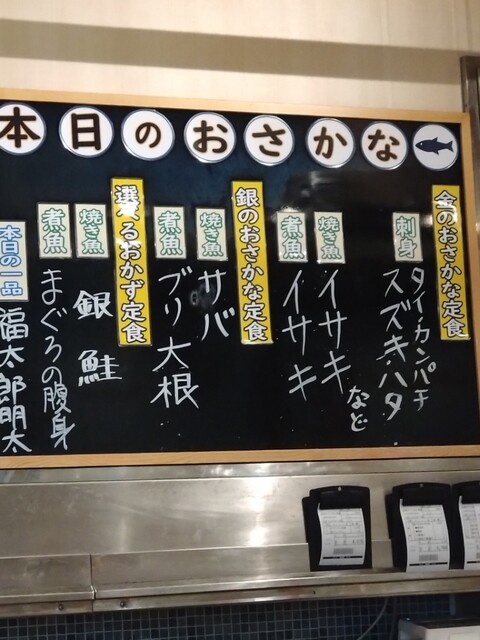 本日のおさかな
金のおさかな定食
刺身
タイ・カンパチ
スズキ・ハタ
など
焼き魚
イサキ
煮魚
イサキ
銀のおざかな定食
焼き魚
サバ
煮魚
ブリ大根
選べるおかず定食
焼き魚
銀鮭
煮魚
まぐろの腹身
本日の一品
福太郎明太